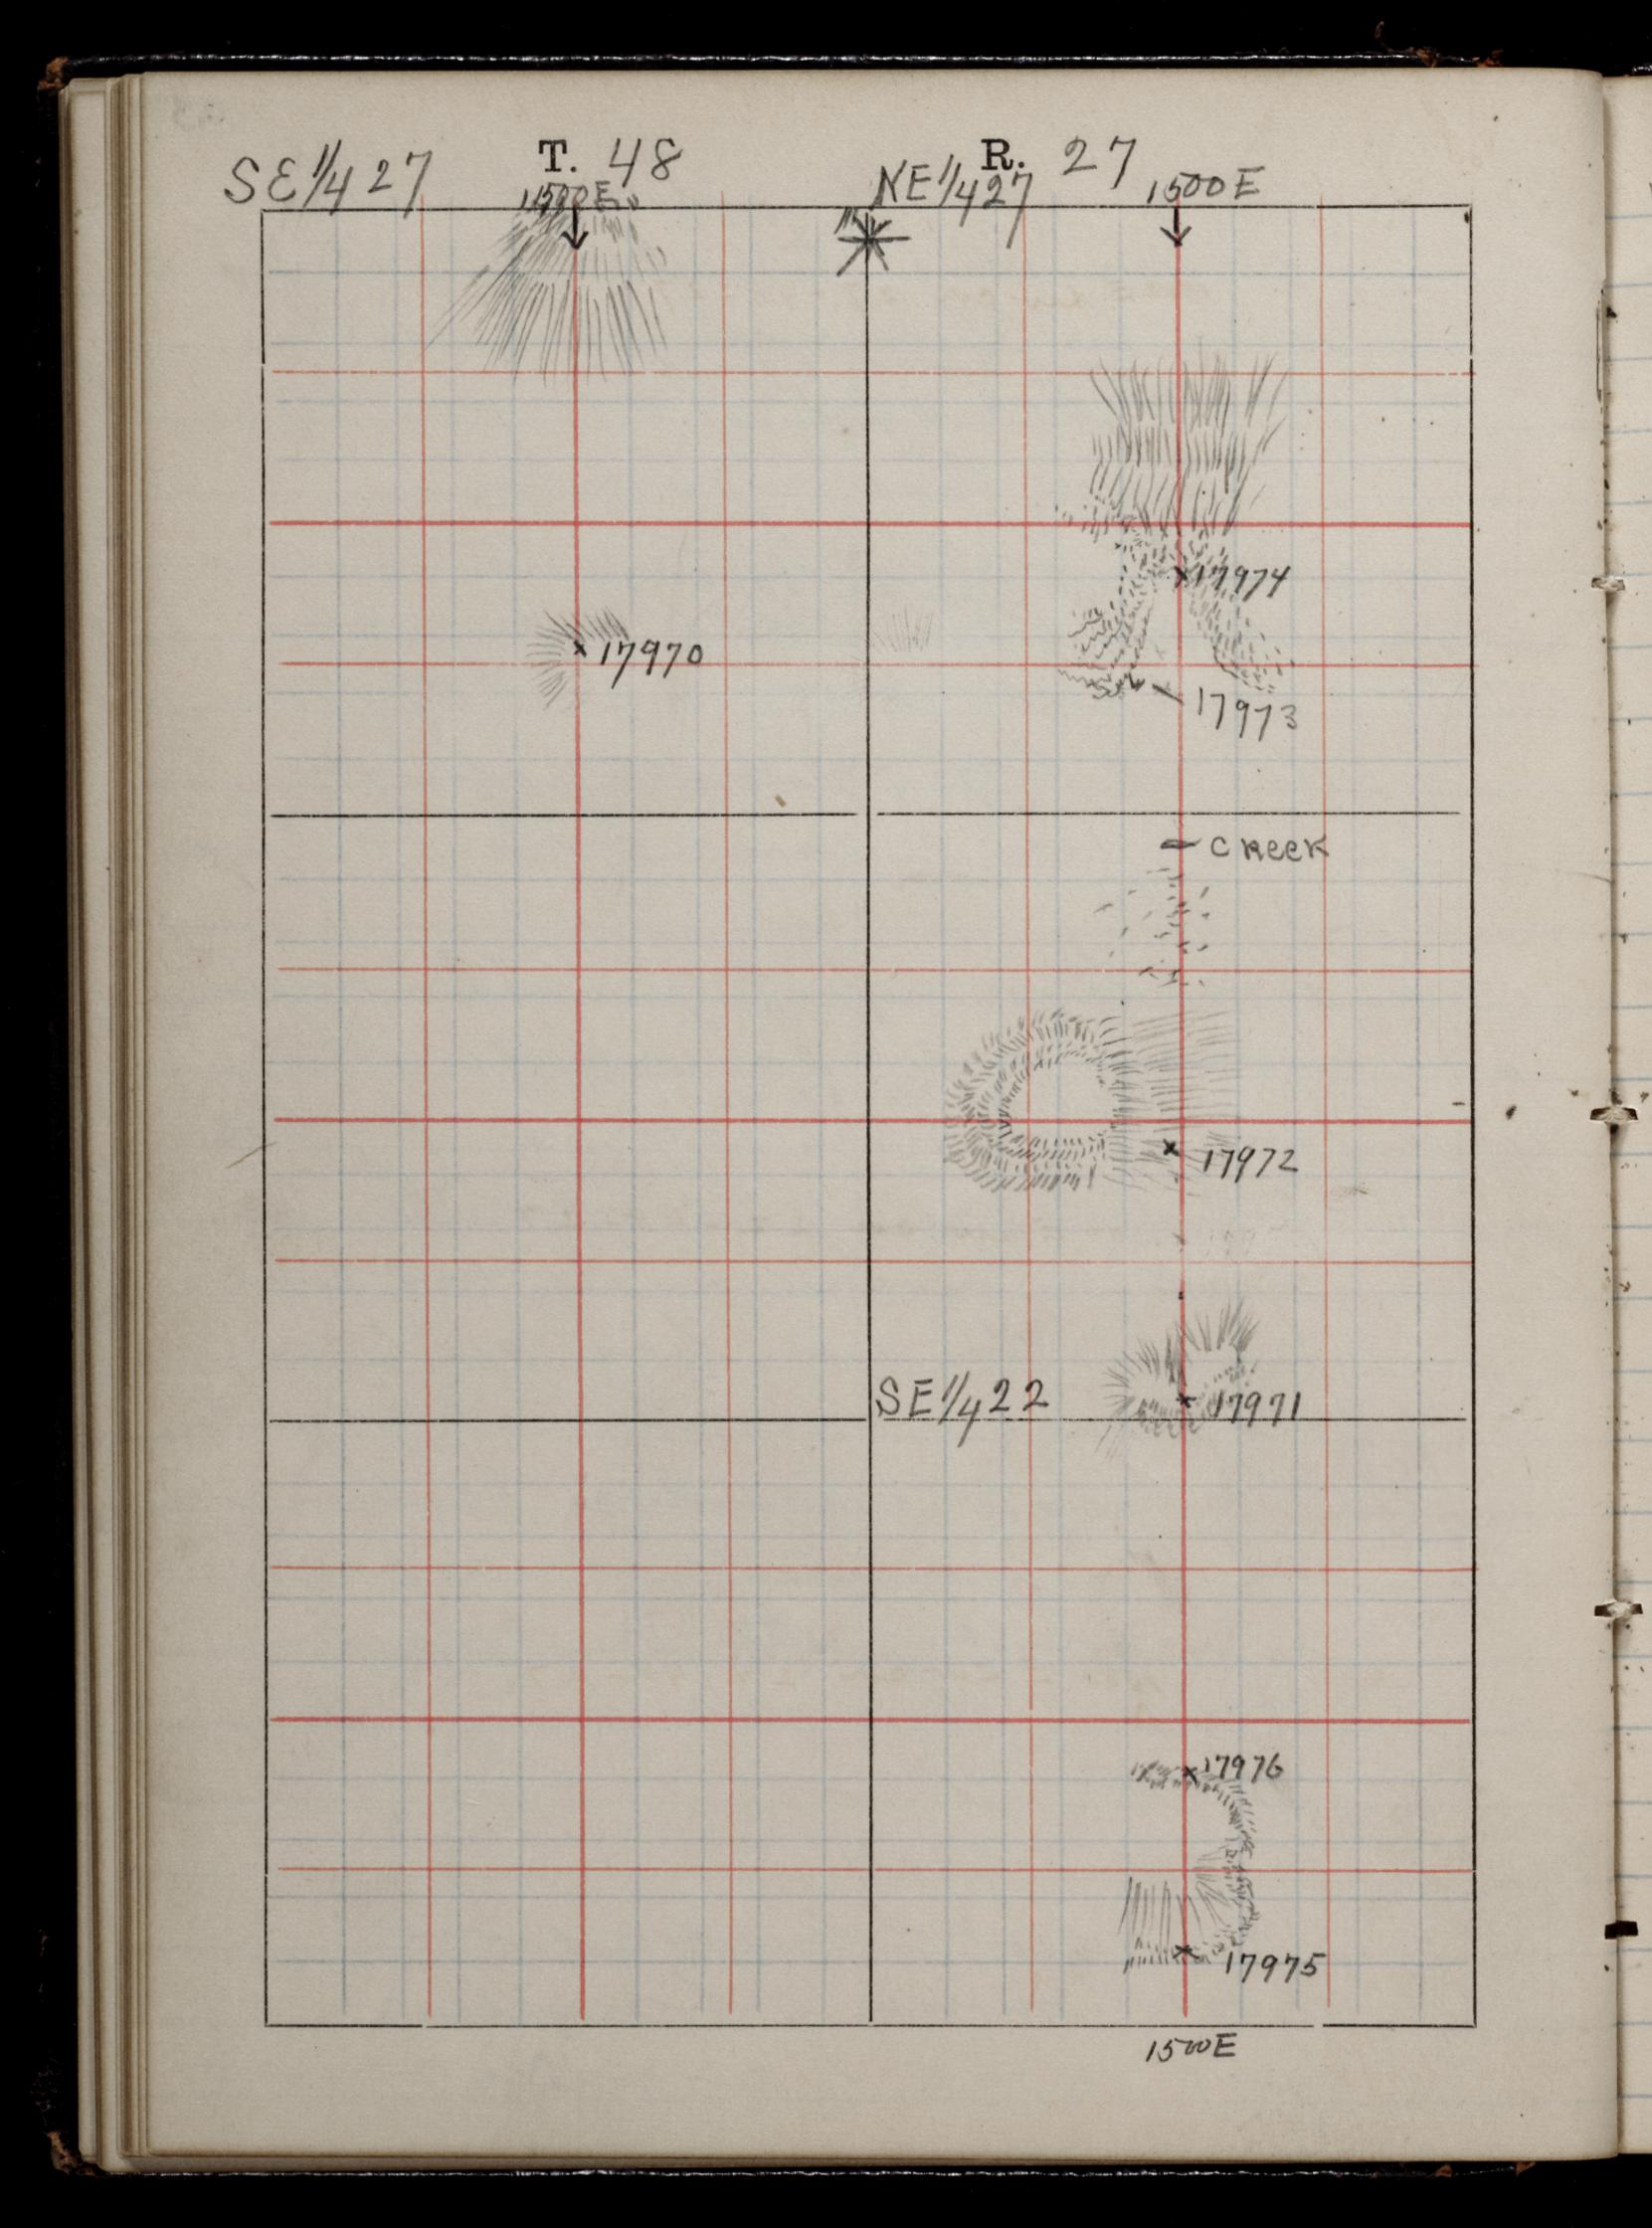 T. 48 R. 27
SE 1/4 27 1500E NE 1/4 27 1500E
17974
17970
17973
CREEK
17972
SE 1/4 22 17971
17976
17975
1500E